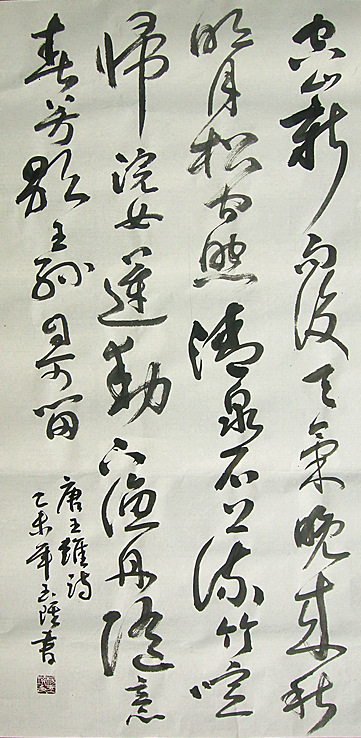 空山新雨後天氣晚来秋
明月松間照清泉石上流竹喧
歸浣女蓮動下漁舟隨意
春芳歇王孫自可留
唐王維詩
乙未年玉書